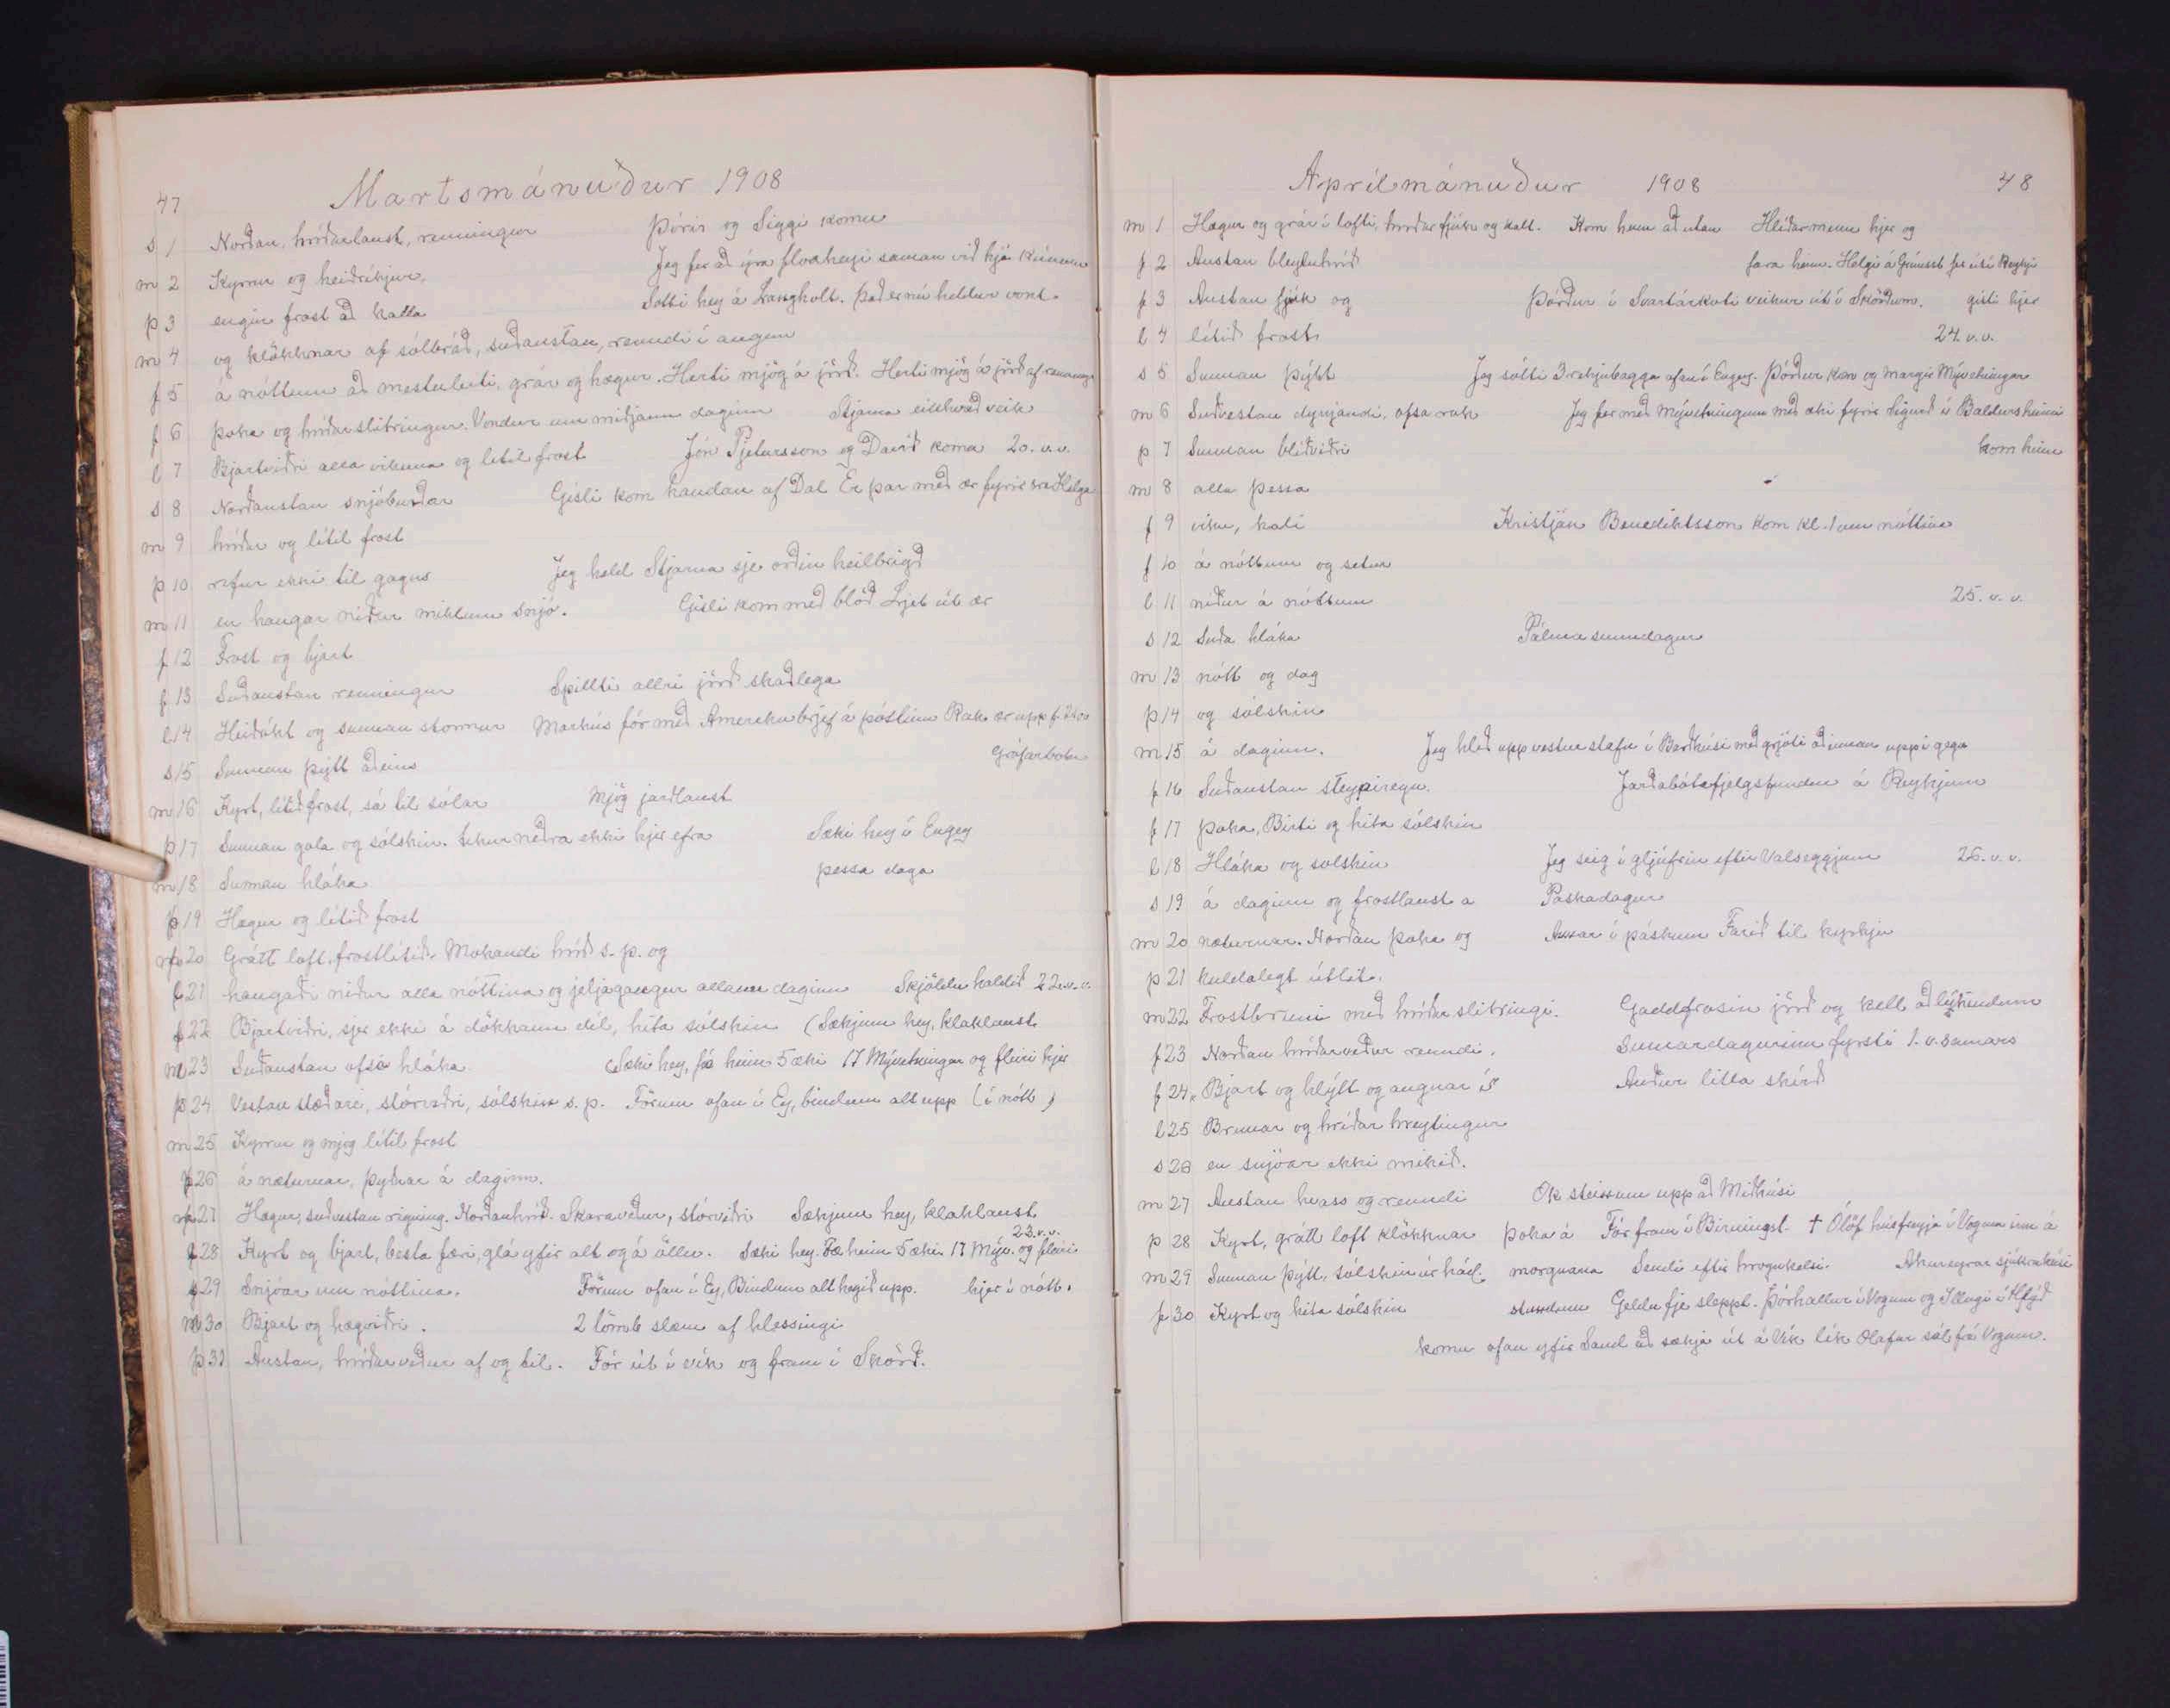 47 Martsmánuður 1908
s 1 Norðan, hríðarlaust, renningur Þórir og Siggi komu
m 2 Kyrrur og heiðríkjur, Jeg fer að ýra flóaheyi saman við hjá kúnum
þ 3 engin frost að kalla Sótti hey á Langholt. Það er nú heldur vont.
m 4 og klökknar af sólbráð, suðaustan, renndi í augum
f 5 á nóttum að mestu leiti, grár og hægur. Herti mjög á jörð. Herti mjög á jörð af renning
f 6 Þoka og hríðarslitringur. Vondur um miðjann daginn Stjarna eitthvað veik
l 7 Bjartviðri alla vikuna og lítil frost Jón Pjetursson og Davíð koma 20. v.v.
s 8 Norðaustan snjóburðar Gísli kom handan af Dal Er þar með ær fyrir sra Helga
m 9 hríðar og lítil frost
þ 10 rífur ekki til gagns Jeg held Stjarna sje orðin heilbrigð
m 11 en hangar niður miklum snjó. Gísli kom með blöð Ljet út ær
f 12 Frost og bjart
f 13 Suðaustan renningur Spillti allri jörð skaðlega
l 14 Heiðskt og sunnan stormur Markús fór með Ameríku brjef á póstinn Rak ær upp f.
s 15 Sunnan þýtt aðeins Grófarbotn
m 16 Kyrt, lítið frost, sá til sólar Mjög jarðlaust
þ 17 Sunnan gola og sólskin. tekur neðra ekki hjer efra Sæki hey í Engey
m 18 Sunnan hláka þessa daga
þ 19 Hægur og lítið frost
f 20 Grátt loft, frostlítið. Mokandi hríð s.p. og
f 21 hangaði niður alla nóttina og jeljagangur allann daginn Skjöldu haldið 22. v.v.
f 22 Bjartviðri, sjer ekki á dökkann díl, hita sólskin (Sækjum hey, klaklaust
m 23 Suðaustan ofsa hláka (Sæki hey, fæ heim 5 æki 17 Mývetningar og fleiri hjer
þ 24 Vestan stæðare, stórviðri, sólskin s.p. Förum ofan í Ey, bindum alt upp (í nótt)
m 25 Kyrrur og mjög lítil frost
f 26 á næturnar, þyðnar á daginn.
f 27 Hægur, suðvestan rigning. Norðanhríð. Skaraveður, stórviðri Sækjum hey, klaklaust
23. v.v.
l 28 Kyrt og bjart, besta færi, glá yfir alt og á öllu. Sæki hey. Fæ heim 5 æki 17 Mýv. og fleiri
s 29 Snjóar um nóttina. Förum ofan í Ey, Bindum alt heyið upp. hjer í nótt.
m 30 Bjart og hægviðri. 2 lömb slæm af klessingi
þ 31 Austan, hríðarveður af og til. Fór út í vík og fram í Skörð.
Aprílmánuður 1908 48
m 1 Hægur og grár í lofti, hríðarfjúk og kalt. Kom heim að utan Hlíðarmenn hjer og
f 2 Austan bleytuhríð fara heim. Helgi á Grímsst fer út í Reykj
f 3 Austan fjúk og Þórður í Svartárkoti veikur út í Skörðum. gisti hjer
l 4 lítið frost 24. v.v.
s 5 Sunnan þýtt Jeg sótti 3 rekjubagga ofan í Engey. Þórður kom og margir Mývetningar
m 6 Suðvestan dynjandi, ofsa rok Jeg fer með Mývetningum með æki fyrir Sigurð á Baldursheimi
þ 7 Sunnan blíðviðri kom heim
m 8 alla þessa
f 9 viku, hali Kristján Benediktsson kom kl. 1 um nóttina
f 10 á nóttum og setur
l 11 niður á nóttum 25. v.v.
s 12 Suða hláka Pálmasunnudagur
m 13 nótt og dag
þ 14 og sólskin
m 15 á daginn. Jeg hlóð upp vestur stafn í Barðhúsi með grjóti að innan upp í gegn
f 16 Suðaustan steypiregn. Jarðabótafjelagsfundur á Reykjum
f 17 Þoka, Birti og hita sólskin
l 18 Hláka og sólskin Jeg seig í gljúfrin eftir Valseggjum 26. v.v.
s 19 á daginn og frostlaust a Páskadagur
m 20 næturnar. Norðan þoka og Annar í páskum Farið til kyrkju
þ 21 kuldalegt útlit.
m 22 Frostbruni með hríðar slitringi. Gaddfrosin jörð og kell að
f 23 Norðan hríðarveður renndi. Sumardagurinn fyrsti 1. v. sumars
f 24 Bjart og hlýtt og augnar ís Auður litla skírð
l 25 Brunar og hríðar hreytingur
s 26 en snjóar ekki mikið.
m 27 Austan hvass og renndi Ók steinum upp að Miðhúsi
þ 28 Kyrt, grátt loft klökknar þoka á Fór fram í Birningst. † Ólöf húsfreyja í Vogum inn á
m 29 Sunnan þýtt, sólskin úr hád. morgnana Sendi eftir hrognkelsi. Akureyrar sjúkrahúsi
f 30 Kyrt og hita sólskin stundum Geldu fje sleppt. Þórhallur í Vogum og Illugi í
komu ofan yfir Sand að sækja út á Vík lík Ólafar sál. frá Vogum.